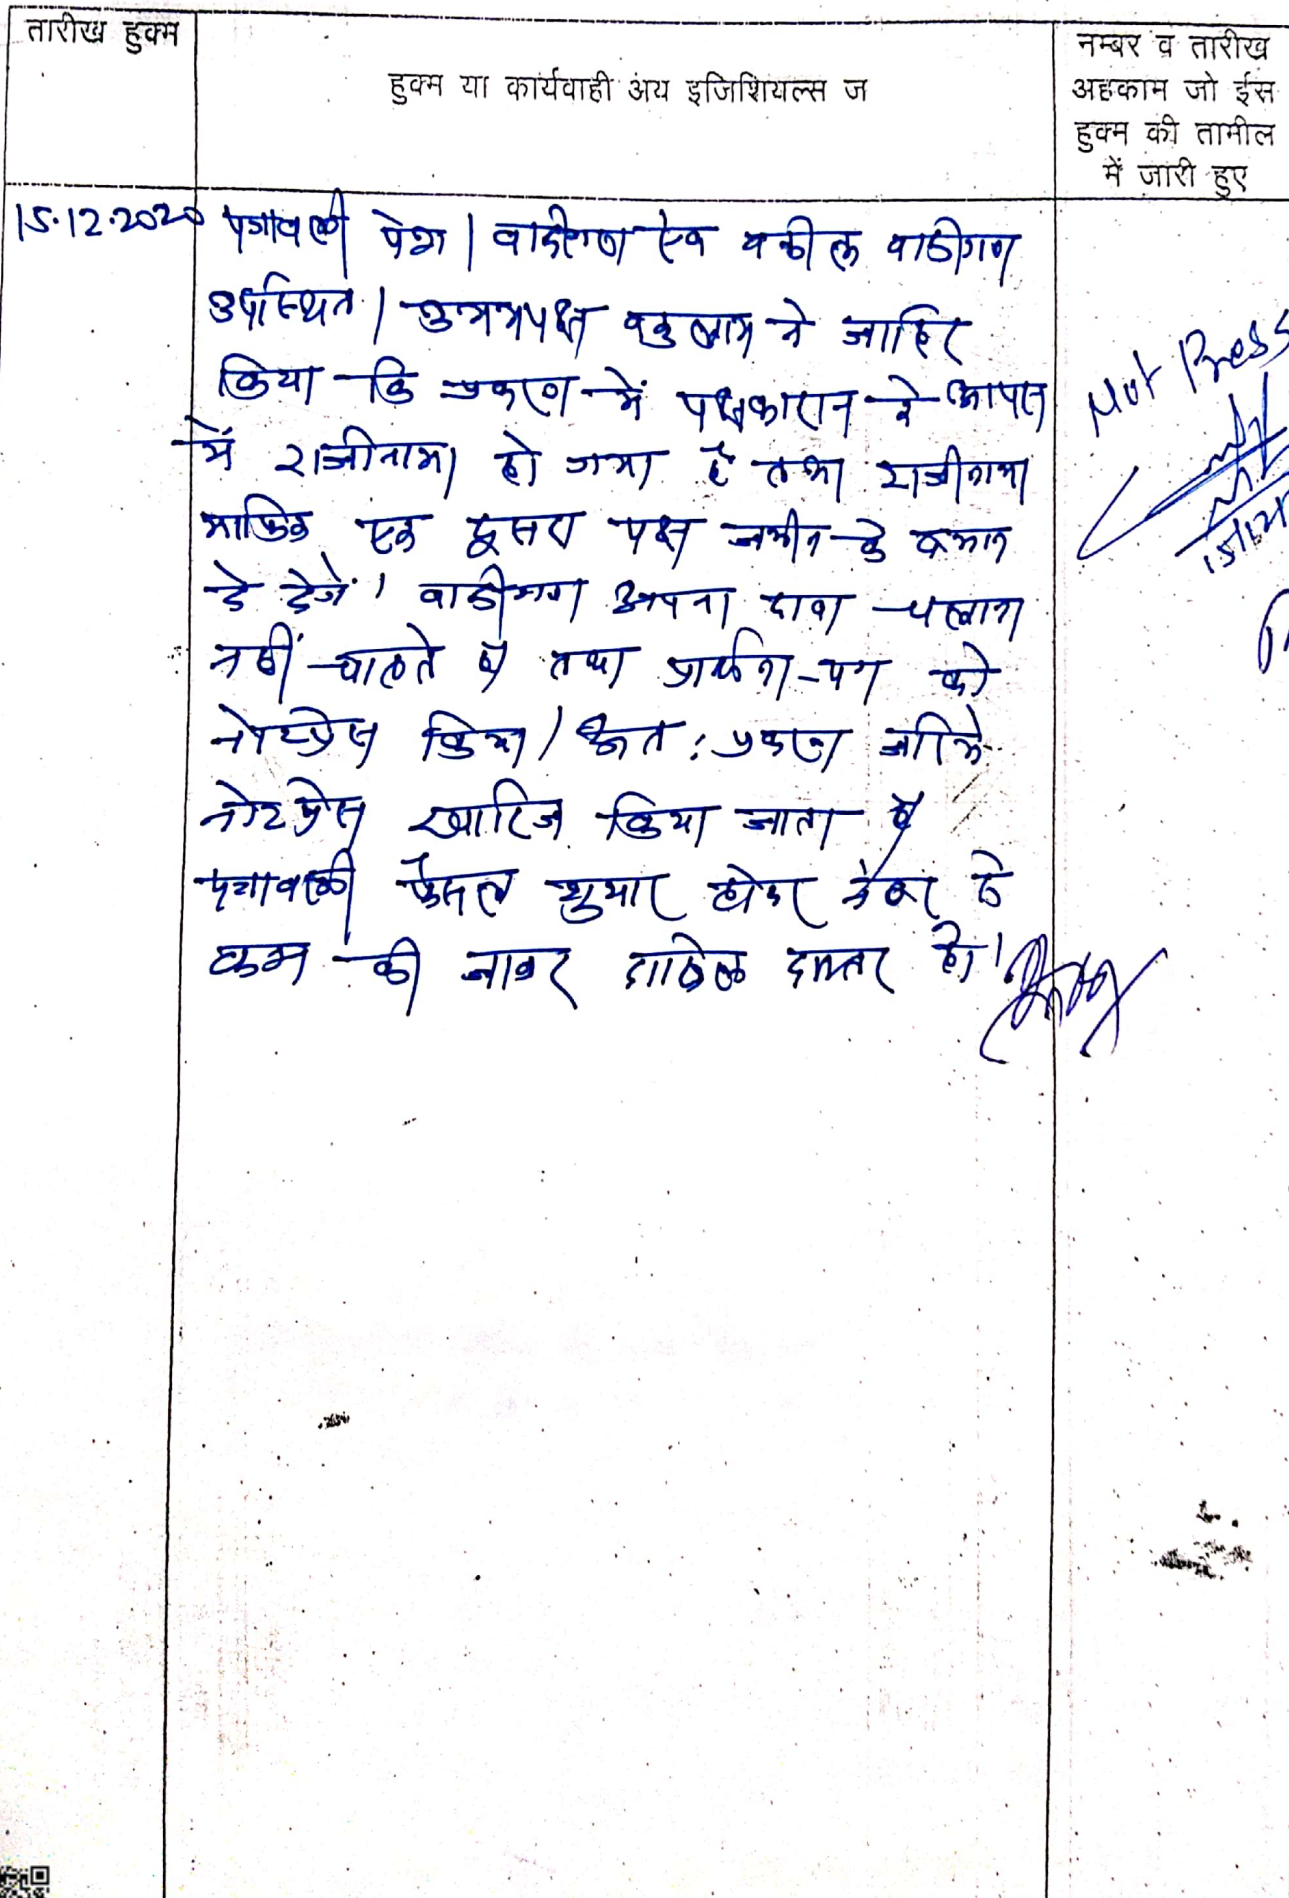 तारीख हुक्म
हुक्म या कार्यवाही अय इजिशियल्स ज
नम्बर व तारीख
अहकाम जो ईस
हुक्म की तामील
में जारी हुए
15.12.2020 पत्रावली पेश। वादीगण एवं वकील वादीगण
उपस्थित। उभयपक्ष वकुलाय ने जाहिर
किया कि प्रकरण में पक्षकारान ने आपस
में राजीनामा हो गया है तथा राजीनामा
माफिक एक दूसरा पक्ष जमीन के
दे देंगे। वादीगण अपना दावा चलाना
नहीं चाहते है तथा प्रार्थना-पत्र को
नोटप्रेस किया। अतः प्रकरण जरिये
नोटप्रेस खारिज किया जाता है
पत्रावली फैसल शुमार होकर नंबर से
कम की जाकर दाखिल दफ्तर हो।
Not Press